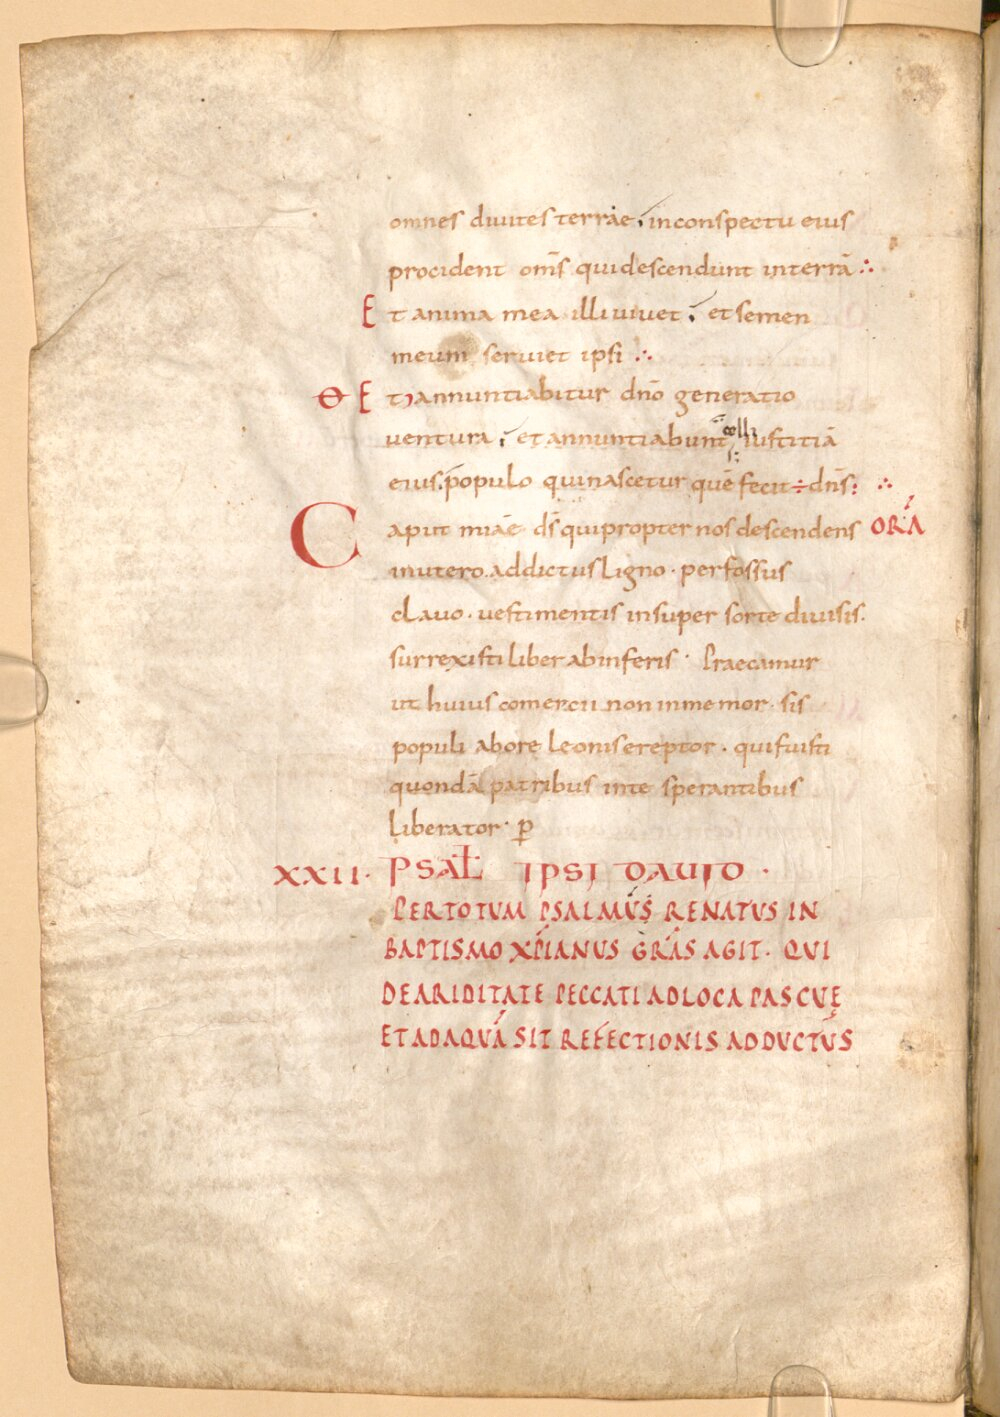 omnes diuites terrae, inconspectu eius
procident om̄s quidescendunt interrā ∴
Et anima mea illi uiuet; et semen
meum seruiet ipsi ∴
Θ Et annuntiabitur dn̄o generatio
uentura; et annuntiabunt cęli iustitiā
eius. populo qui nascetur quē fecit ÷ dn̄s: ∴
Caput n̄ūm d̄s̄ quipropter nos descendens ORĀ
inutero. addictus ligno · perfossus
clauo · uestimentis insuper sorte diuisis.
surrexisti liber abinferis · Praecamur
ut huius comercii non inmemor · sis
populi abore leonis ereptor · qui fuisti
quondā patribus inte sperantibus
liberator · p̄
XXII · PSAL̄ IPSI DAUID ·
PERTOTUM PSALMUS RENATUS IN
BAPTISMO XP̄IANUS GRĀS AGIT · QUI
DEARIDITATE PECCATI ADLOCA PASCUĘ
ETADAQUĀ SIT REFECTIONIS ADDUCTUS